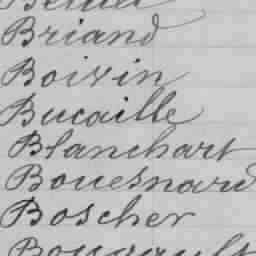 Briand
Boivin
Bucaille
Blanchart
Bouesnard
Boscher